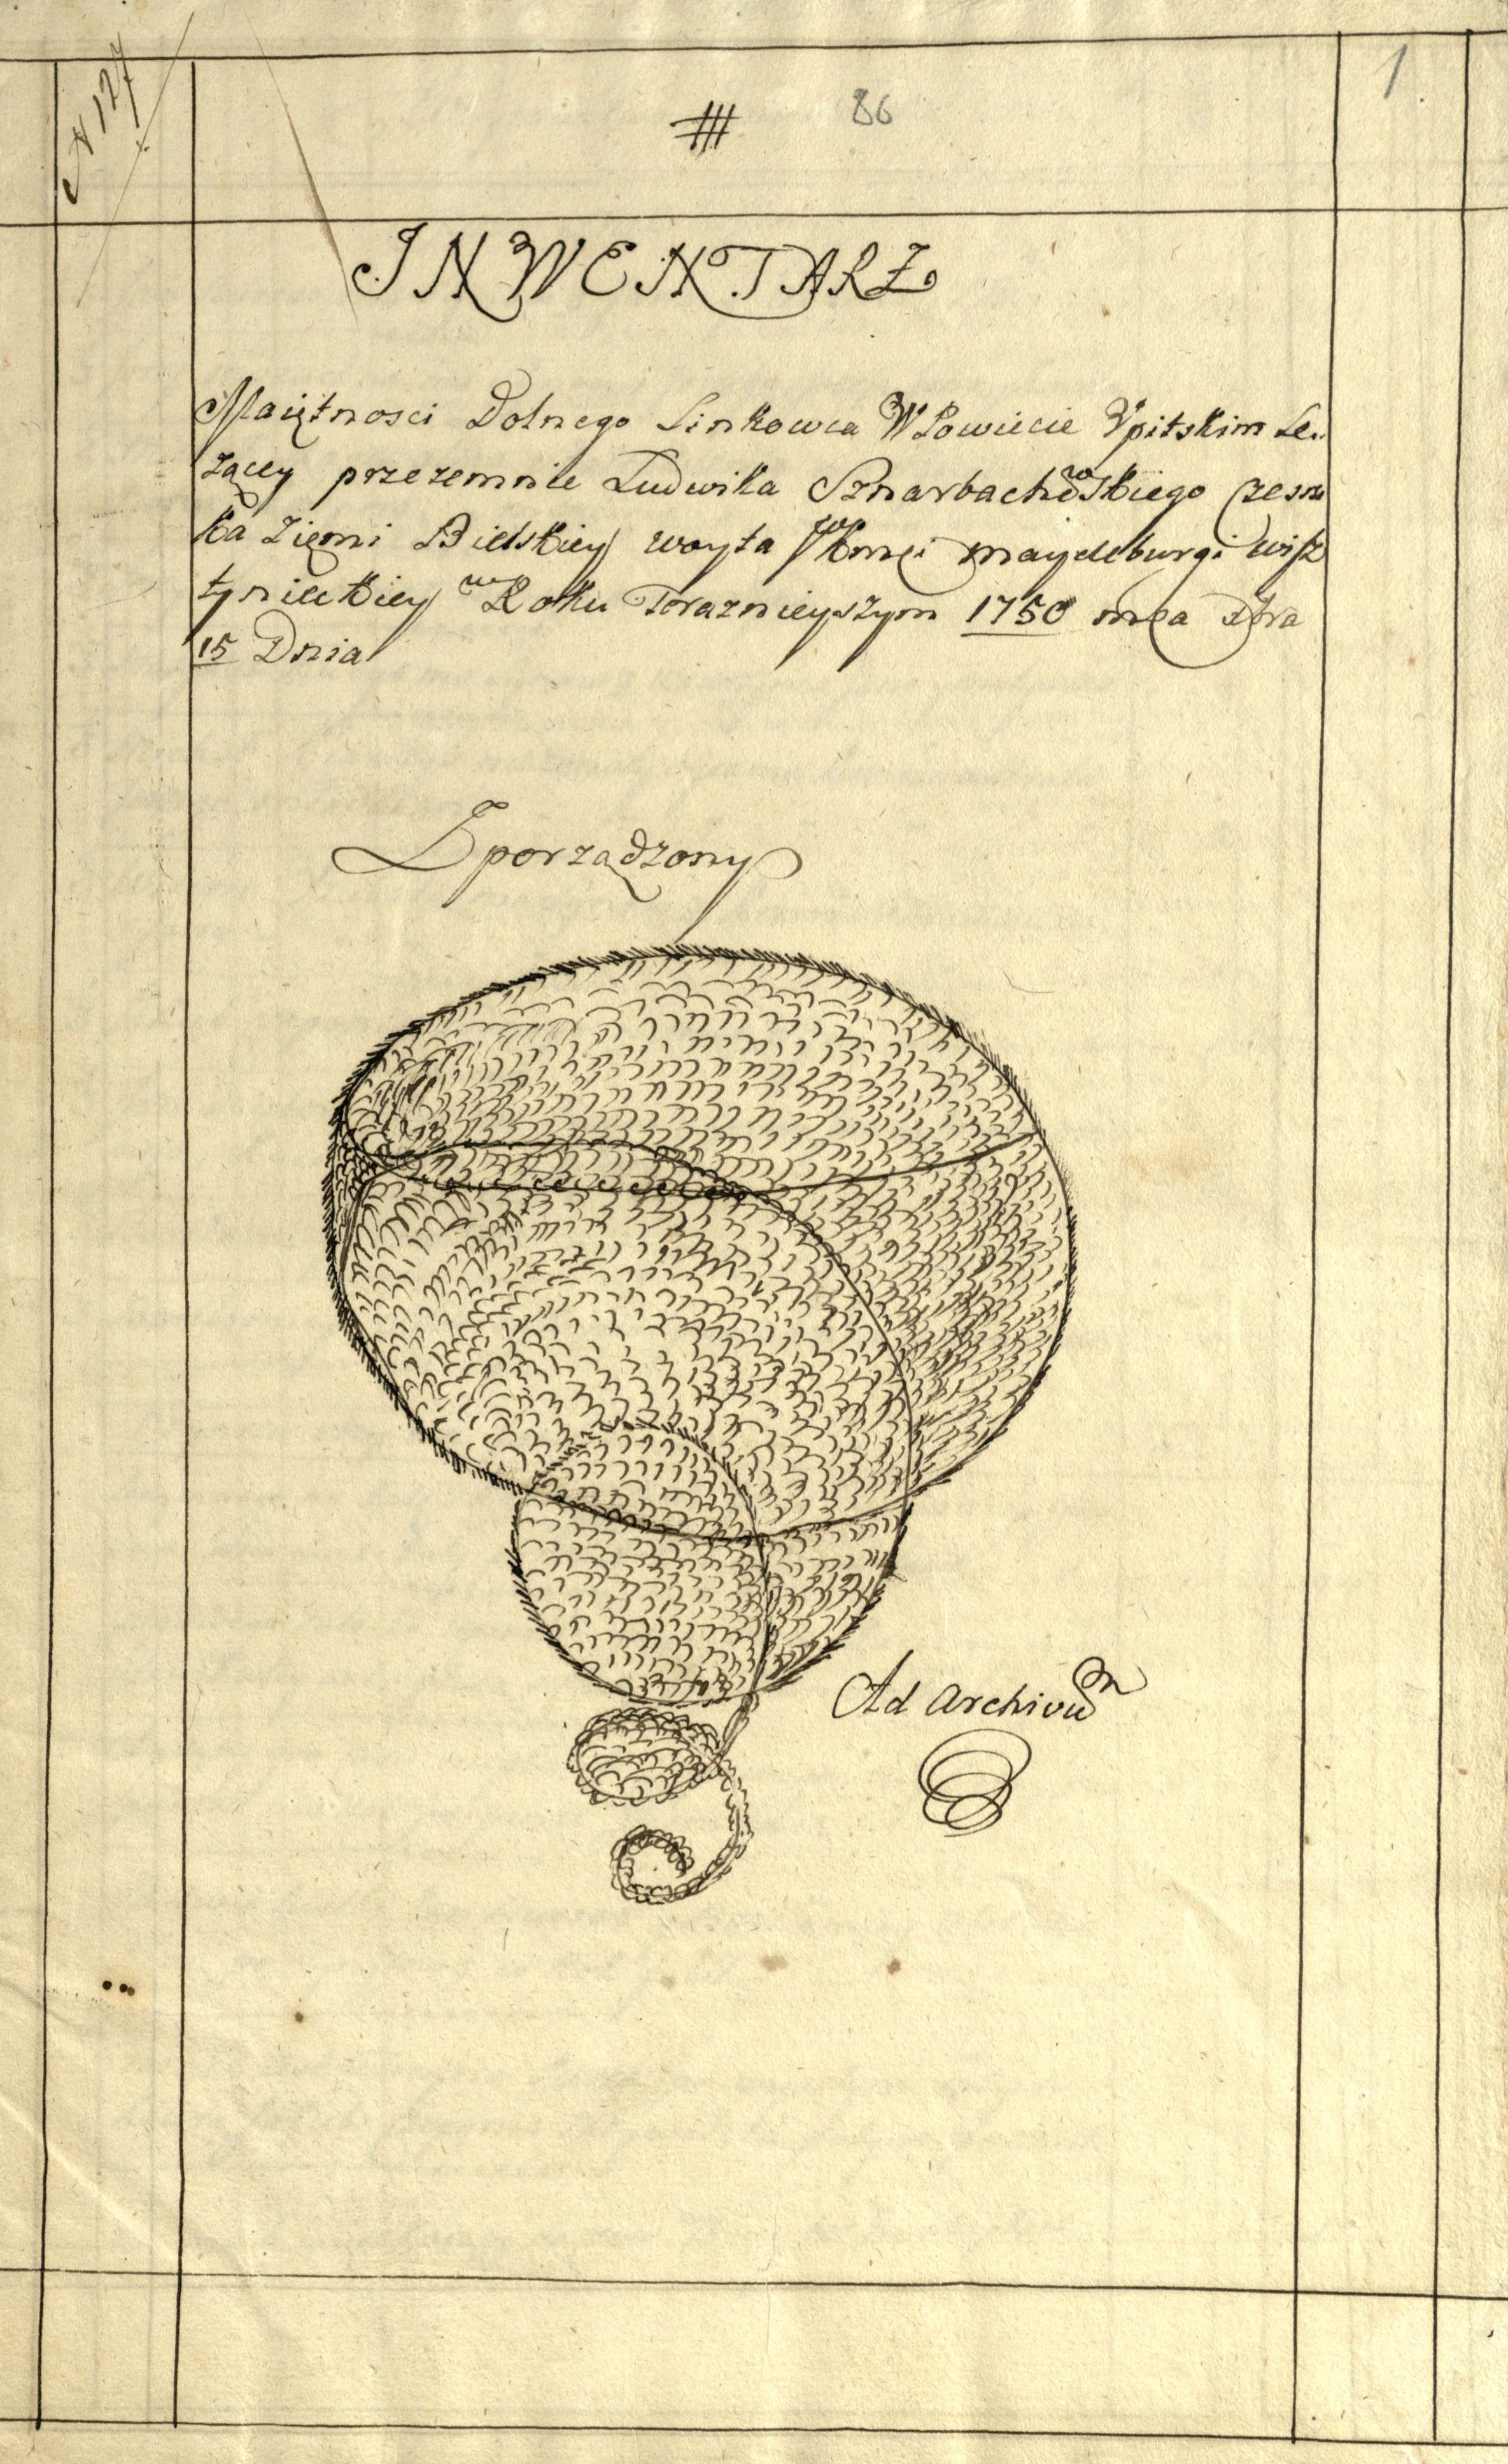 N 127
1
86
INWENTARZ
Maiętnosci Dolnego Linkowca W Powiecie Vpitskim Le:
zącey przezemnie Ludwika Sznarbachowskiego Czesni
ka Ziemi Bielskiey woyta maydeburgi wisz
tynieckiey w Roku Teraznieyszym 1750 mca Xbra
15 Dnia
Zporządzony
Ad Archivum